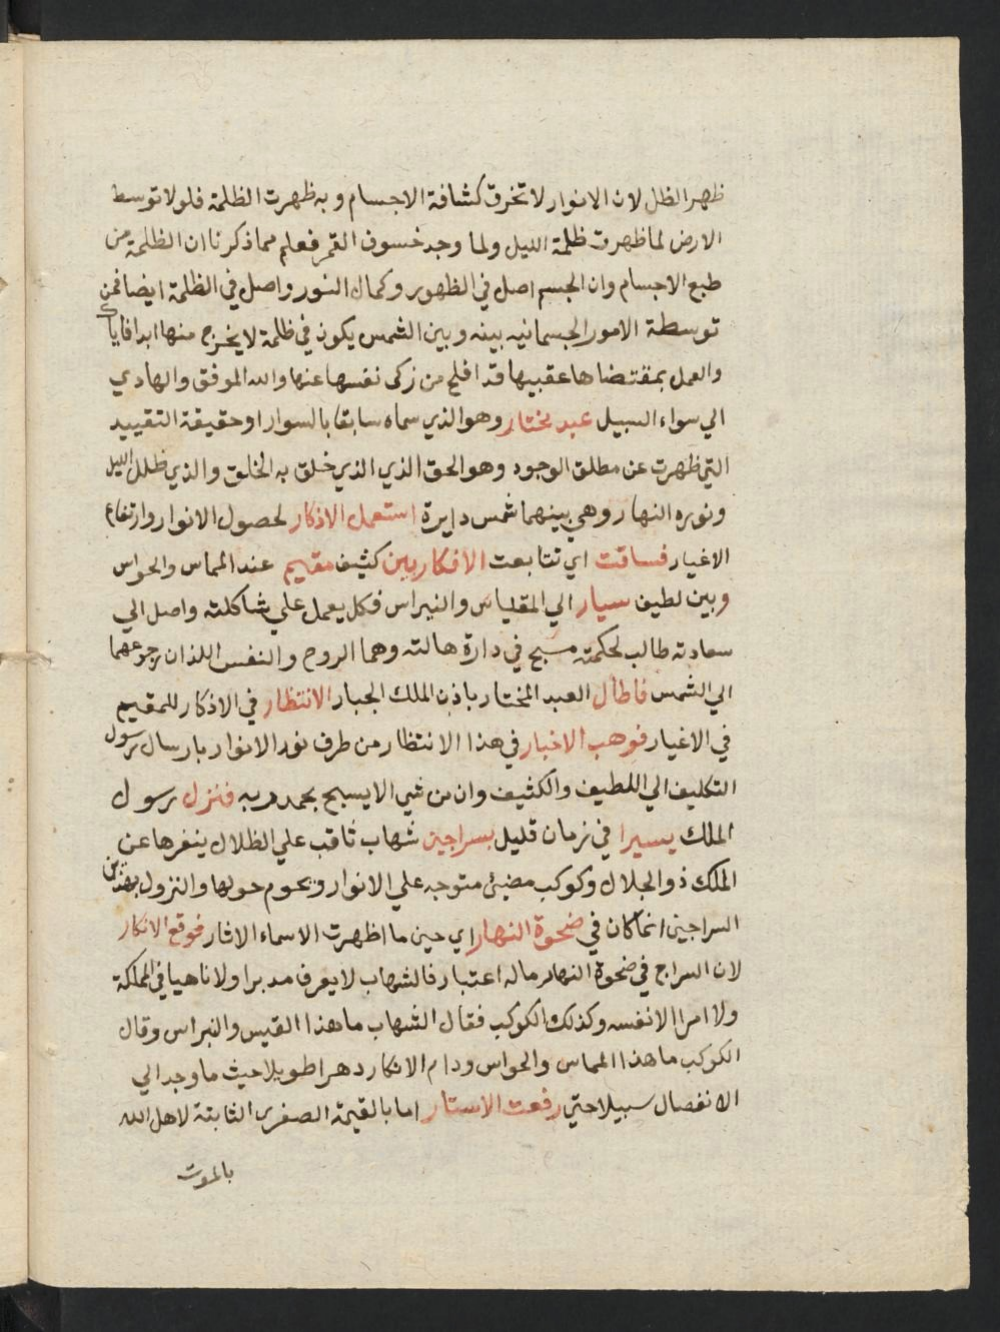 ظهر الظل لان الانوار لا تخرق كشافة الاجسام و به ظهرت الظلمة فلولا توسط
الارض لما ظهرت ظلمة الليل ولما وجد خسوف القمر فعلم مما ذكرنا ان الظلمة من
طبع الاجسام وان الجسم اصل في الظهور وكمال النور واصل في الظلمة ايضا فمن
توسطة الامور الجسمانيه بينه وبين الشمس يكون في ظلمة لا يخرج منها ابدا فاياك
والعمل بمقتضاها عقبيها قد افلح من زكى نفسها عنها والله الموفق والهادي
الي سواء السبيل عبد مختار وهو الذي سماه سابقا بالسوار او حقيقة التقييد
التي ظهرت عن مطلق الوجود وهو الحق الذي الذي خلق به الخلق والذي ظلل الليل
ونوره النهار وهي بينهما شمس دايرة استعمل الاذكار لحصول الانوار وارتفاع
الاغيار فساقت اي تتابعت الافكار بين كثيف مقيم عند المماس والحواس
وبين لطيف سيار الي المقلياس والنبراس فكل يعمل علي شاكلته واصل الي
سعادته طالب لحكمته مسبح في دارة هالته وهما الروح والنفس اللذان رجوعهما
الي الشمس فاطال العبد المختار باذن الملك الجبار الانتظار في الاذكار للمقيم
في الاغيار فوهب الاخبار في هذا الانتظار من طرف نور الانوار بارسال رسول
التكليف الي اللطيف والكثيف وان من شي الا يسبح بحمد ربه فنزل رسول
الملك يسيرا في زمان قليل بسراجين شهاب ثاقب علي الظلال ينفرها عن
الملك ذو الجلال وكوكب مضيئ متوجه علي الانوار ويحوم حولها والنزول بهذين
السراجين انما كان في ضحوة النهار اي حين ما اظهرت الاسماء الاثار فوقع الانكار
لان السراج في ضحوة النهار ماله اعتبار فالشهاب لا يعرف مدبرا ولا ناهيا في المملكة
ولا امرا الا نفسه وكذلك الكوكب فقال الشهاب ما هذا القبس والنبراس وقال
الكوكب ما هذا المماس والحواس ودام الانكار دهرا طويلا حيث ما وجد الي
الانفصال سبيلا حتي رفعت الاستار اما بالقيمة الصغري الثابتة لاهل الله
بالموت